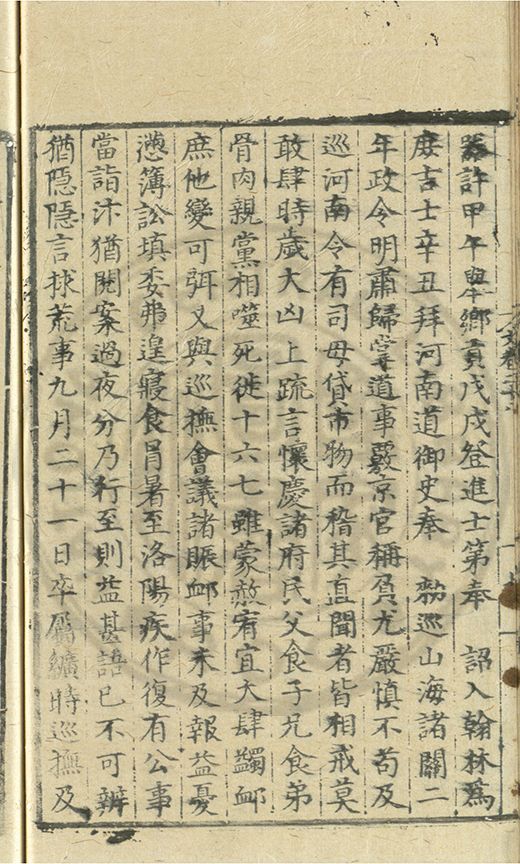 器許甲午舉鄉貢戊戌登進士第奉 詔入翰林為
庶吉士辛丑拜河南道御史奉 勑巡山海諸關二
年政令明肅歸掌道事覈京官稱貟尤嚴慎不苟及
巡河南令有司毋貸市物而稽其直聞者皆相戒莫
敢肆時歲大凶上疏言懷慶諸府民父食子兄食弟
骨肉親黨相噬死徙十六七雖蒙赦宥宜大肆蠲卹
庶他變可弭又與巡撫會議諸賑卹事未及報益憂
懣簿訟填委弗遑寢食冒暑至洛陽疾作復有公事
當詣汴猶閱案過夜分乃行至則益甚語已不可辨
猶隱隱言捄荒事九月二十一日卒屬纊時巡撫及